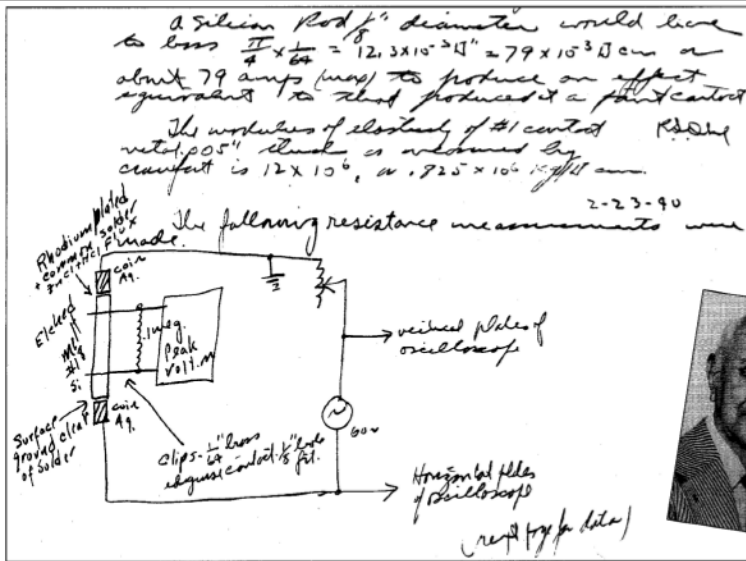 A Silicon Rod 1/8" diameter would have
to pass π/4 × 1/64 = 12.3×10⁻³ □" = 79 × 10⁻³ □ cm or
about 79 amps (max) to produce an effect
equivalent to that produced at a point contact
The modulus of elasticity of #1 contact
metal .005" thick as measured by
is 12 × 10⁶, or .825 × 10⁶ Kg/□ cm.
2-23-40
The following resistance measurements were
made.
Rhodium plated
+ common solder
+ HCl Flux
coin
Ag.
Etched
#1
Si
1 meg.
Peak
volt.m
coin
Ag.
Surface
ground clear
of solder
clips - 1/64" brass
contact
fit.
60~
vertical plates of
oscilloscope
Horizontal plates
of oscilloscope
(next page for data)